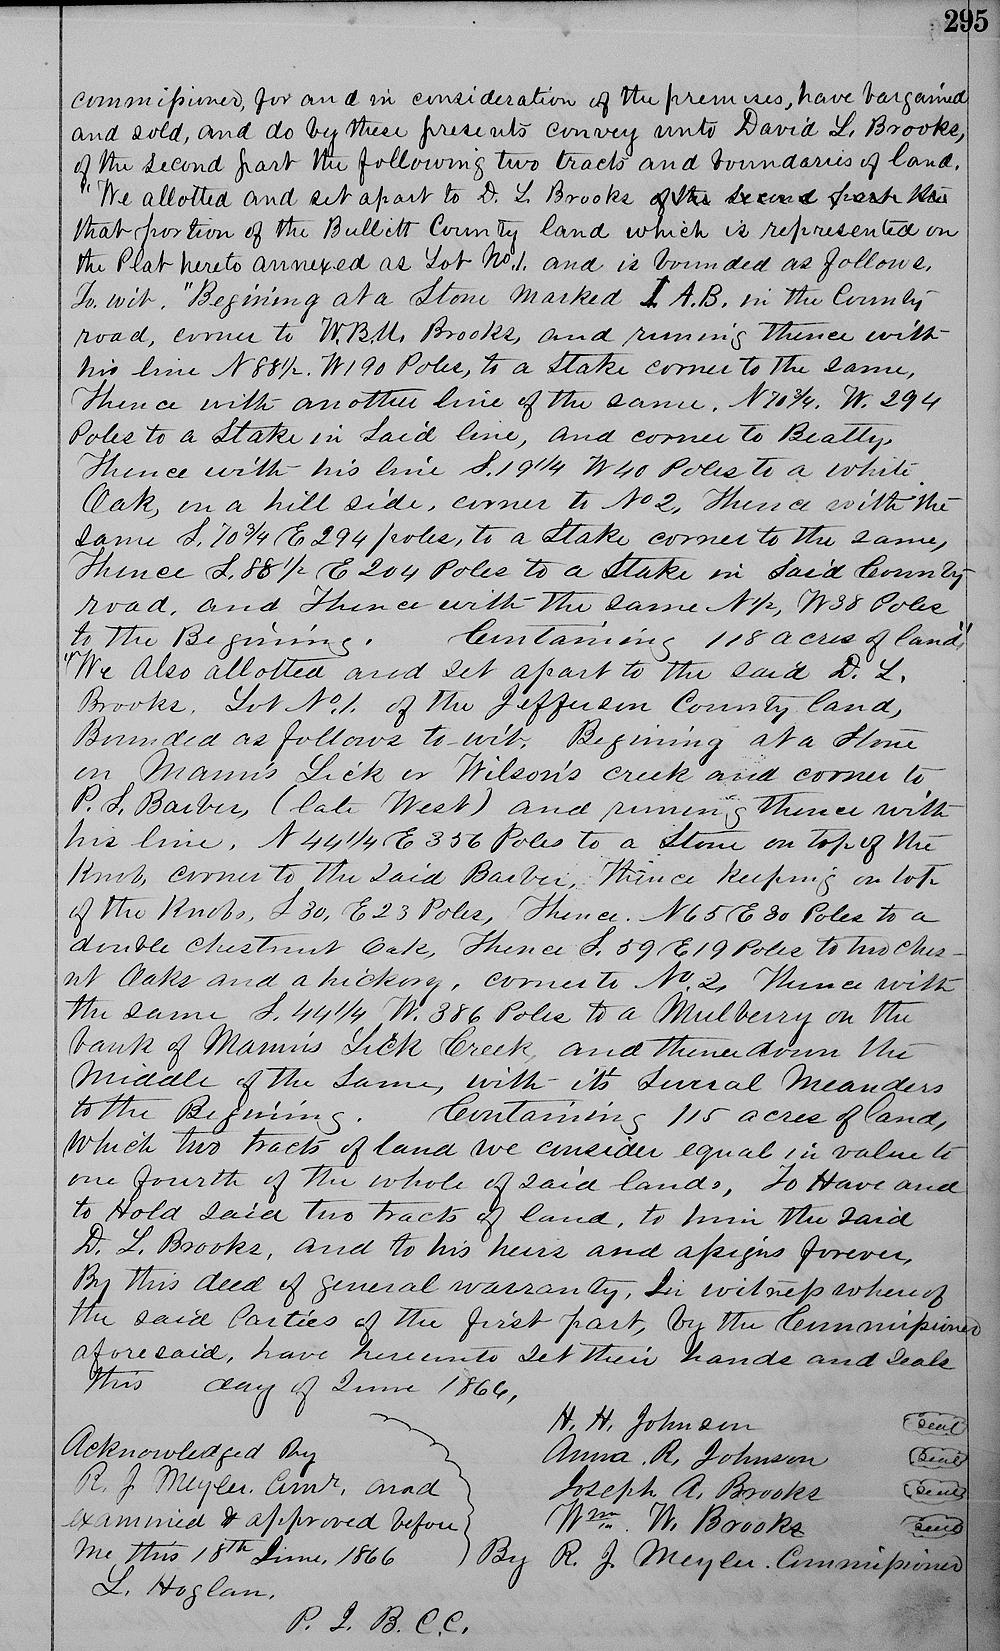 295
commissioner, for and in consideration of the premises, have bargained
and sold, and do by these presents convey unto David L. Brooks,
of the second part the following two tracts and boundaries of land.
"We allotted and set apart to D. L. Brooks of the second part the
that portion of the Bullitt County land which is represented on
the Plat hereto annexed as Lot No. 1. and is bounded as follows.
To wit. "Begining at a Stone marked I A.B. in the County
road, corner to W.B.M. Brooks, and runing thence with
his line N 88½. W 190 Poles, to a Stake corner to the same,
Thence with another line of the same. N 70¾. W. 294
Poles to a Stake in said line, and corner to Beatty,
Thence with his line S. 19¼ W 40 Poles to a white
Oak, on a hill side, corner to No 2, Thence with the
same S. 70¾ E 294 poles, to a Stake corner to the same,
Thence S. 88½ E 204 Poles to a Stake in said County
road, and Thence with the same N ½, W 38 Poles
to the Begining. Containing 118 acres of land"
"We Also allotted and set apart to the said D. L.
Brooks. Lot No. 1. of the Jefferson County land,
Bounded as follows to-wit. Begining at a Stone
on Mann's Lick or Wilson's creek and corner to
P. S. Barber, (late West) and runing thence with
his line. N 44¼ E 356 Poles to a Stone on top of the
Knob, corner to the said Barber, Thence keeping on top
of the Knobs, S 30, E 23 Poles, Thence. N 65 E 30 Poles to a
double chestnut Oak, Thence S. 59 E 19 Poles to two ches-
nt Oaks and a hickory, corner to No. 2, Thence with
the same S. 44¼ W. 386 Poles to a Mulberry on the
bank of Mann's Lick Creek, and thence down the
middle of the same, with its several meanders
to the Begining. Containing 115 acres of land,
which two tracts of land we consider equal in value to
one fourth of the whole of said lands, To Have and
to Hold said two tracts of land, to him the said
D. L. Brooks, and to his heirs and assigns forever,
By this deed of general warranty, In witness whereof
the said Parties of the first part, by the Commissioner
aforesaid, have hereunto set their hands and seals
this day of June 1866,
H. H. Johnson seal
Anna. R. Johnson seal
Joseph A. Brooks seal
Wm. W. Brooks seal
By R. J. Meyler. Commissioner
Acknowledged by
R. J. Meyler. Comr. and
examined & approved before
me this 18th June, 1866
L. Hoglan.
P. J. B. C. C.